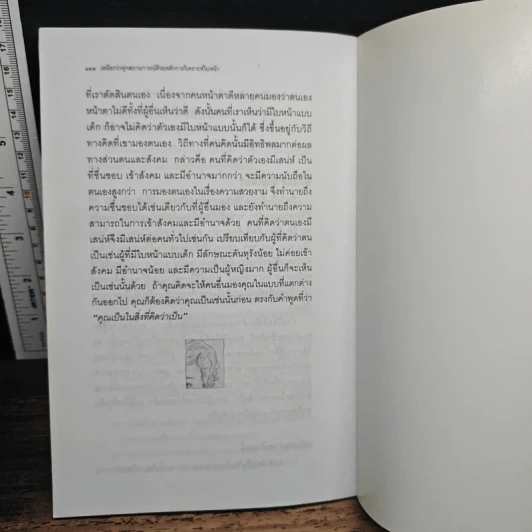 ๑๑๑ เหนือกว่าทุกสถานการณ์ด้วยหลักการวิเคราะห์ใบหน้า
ที่เราตัดสินตนเอง เนื่องจากคนหน้าตาดีหลายคนมองว่าตนเอง
หน้าตาไม่ดีทั้งที่ผู้อื่นเห็นว่าดี ดังนั้นคนที่เราเห็นว่ามีใบหน้าแบบ
เด็ก ก็อาจไม่คิดว่าตัวเองมีใบหน้าแบบนั้นก็ได้ ซึ่งขึ้นอยู่กับวิถี
ทางคิดที่เขามองตนเอง วิถีทางที่คนคิดนั้นมีอิทธิพลมากต่อผล
ทางส่วนตนและสังคม กล่าวคือ คนที่คิดว่าตัวเองมีเสน่ห์ เป็น
ที่ชื่นชอบ เข้าสังคม และมีอำนาจมากกว่า จะมีความนับถือใน
ตนเองสูงกว่า การมองตนเองในเรื่องความสวยงาม จึงทำนายถึง
ความชื่นชอบได้เช่นเดียวกับที่ผู้อื่นมอง และยังทำนายถึงความ
สามารถในการเข้าสังคมและมีอำนาจด้วย คนที่คิดว่าตนเองมี
เสน่ห์จึงมีเสน่ห์ต่อคนทั่วไปเช่นกัน เปรียบเทียบกับผู้ที่คิดว่าตน
เป็นเช่นผู้ที่มีใบหน้าแบบเด็ก มีลักษณะดันทุรังน้อย ไม่ค่อยเข้า
สังคม มีอำนาจน้อย และมีความเป็นผู้หญิงมาก ผู้อื่นก็จะเห็น
เป็นเช่นนั้นด้วย ถ้าคุณคิดจะให้คนอื่นมองคุณในแบบที่แตกต่าง
กันออกไป คุณก็ต้องคิดว่าคุณเป็นเช่นนั้นก่อน ตรงกับคำพูดที่ว่า
“คุณเป็นในสิ่งที่คิดว่าเป็น”